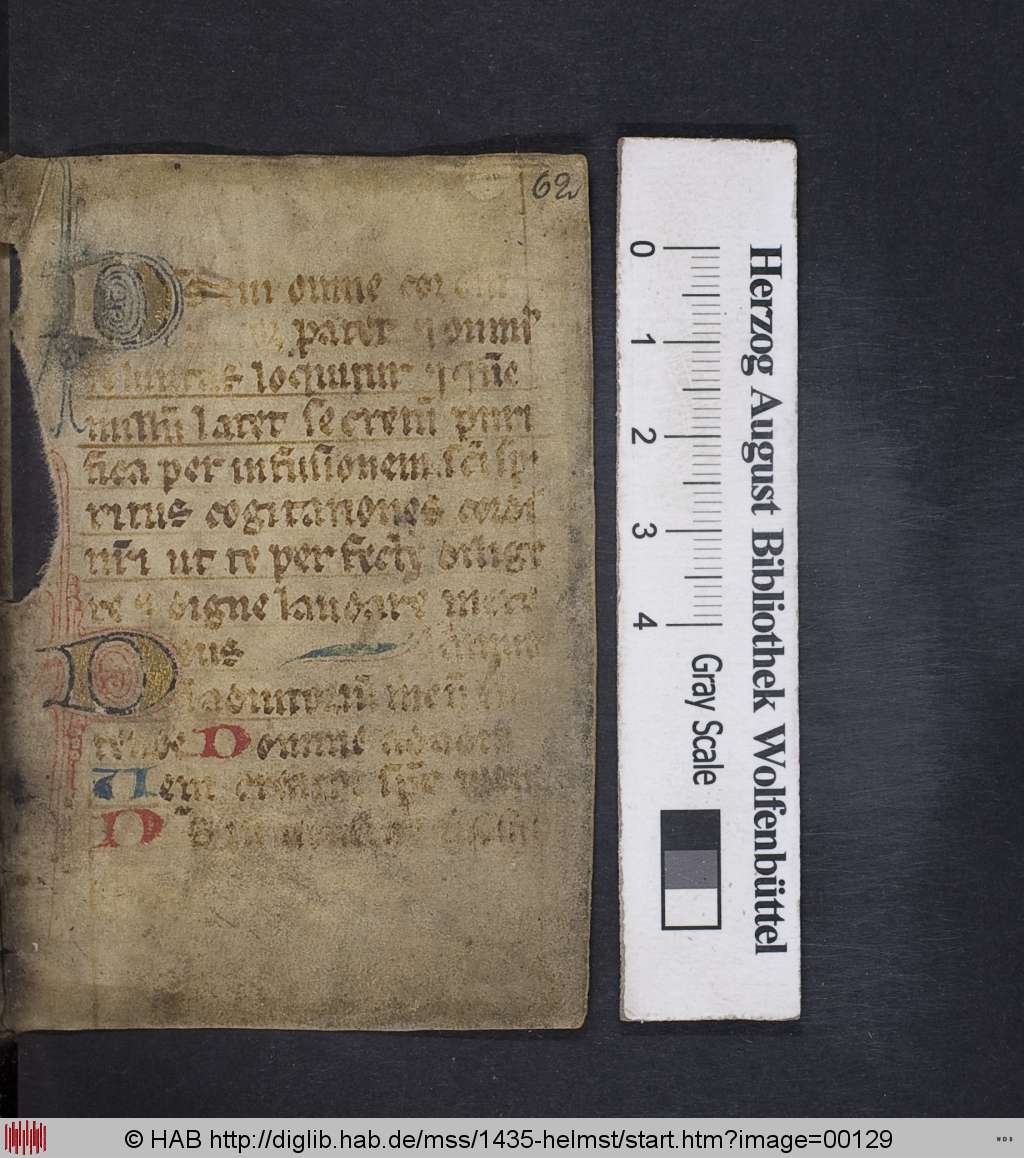 62
D cui omne cor
patet ⁊ omnis
voluntas loquitur ⁊ que̅
nullu̅ latet secretu̅ puri
fica per infusionem sc̅i spi
ritus cogitationes cordis
nr̅i ut te perfecte dilige
re ⁊ digne laudare mere
Deus
adiutoriu̅ meu̅
tende Domine
Ueni creator sp̅s
D
Herzog August Bibliothek Wolfenbüttel
0 1 2 3 4 Gray Scale
© HAB http://diglib.hab.de/mss/1435-helmst/start.htm?image=00129